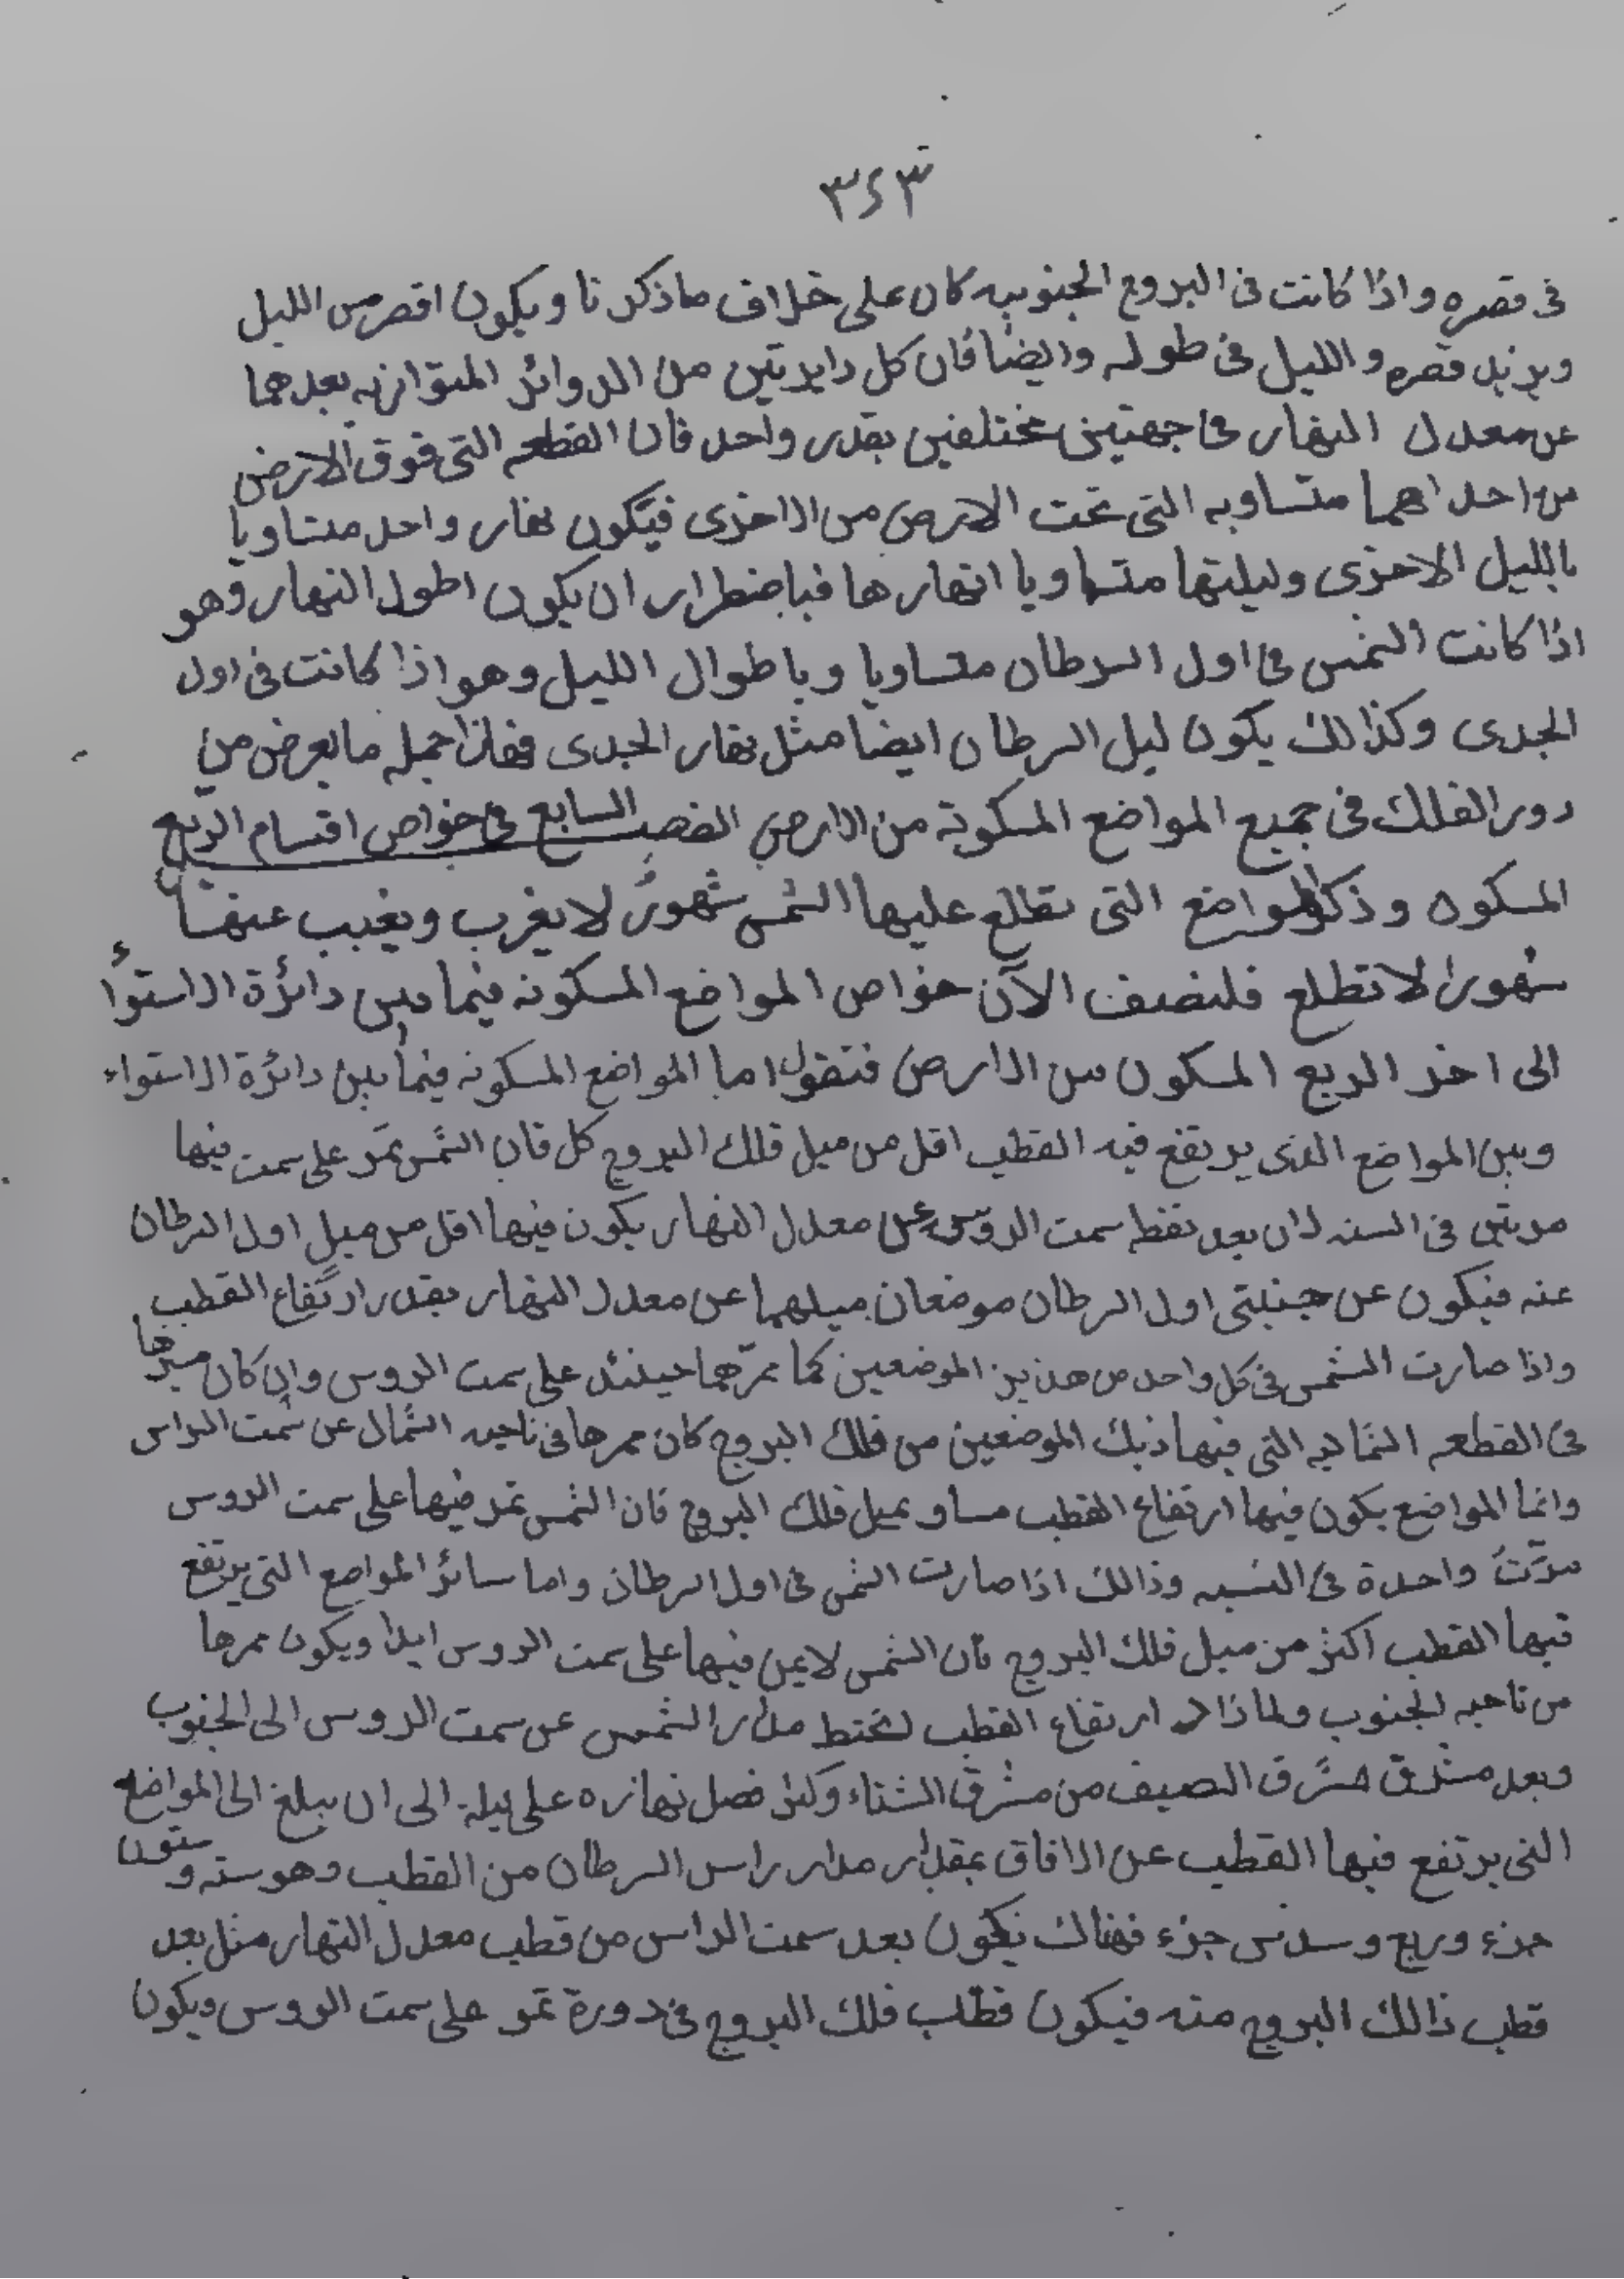 ٣٤٣
فى قصره واذا كانت فى البروج الجنوبيه كان على خلاف ما ذكرنا ويكون اقصر من الليل
ويزيد قصره والليل فى طوله وايضا فان كل دايرتين من الدوائر المتوازيه بعدهما
عن معدل النهار فى جهتين مختلفين بقدر واحد فان القطعه التى فوق الارض
من احداهما متساويه التى تحت الارض من الاخرى فيكون نهار واحد متساويا
بالليل الاخرى وليلتها متساويا انهارها فباضطرار ان يكون اطول النهار وهو
اذا كانت الشمس فى اول السرطان متساويا وباطوال الليل وهو اذا كانت فى اول
الجدى وكذالك يكون ليل السرطان ايضا مثل نهار الجدى فهاذا جمله ما يعرض من
دور الفلك فى جميع المواضع المسكونه من الارض الفصل السابع فى خواص اقسام الربع
المسكون وذكر المواضع التى تطلع عليها الشمس شهورً لا يغرب ويغيب عنها
شهورا لا تطلع فلنصف الآن خواص المواضع المسكونه فيما بين دائرة الاستواء
الى اخر الربع المسكون من الارض فنقول اما المواضع المسكونه فيما بين دائرة الاستواء
وبين المواضع الذى يرتفع فيه القطب اقل من ميل فلك البروج كل فان الشمس تمر على سمت فيها
مرتين فى السنه لان بعد نقط سمت الروس عن معدل النهار يكون فيها اقل من ميل اول السرطان
عنه فيكون عن جنبتى اول السرطان موضعان ميلهما عن معدل النهار بقدر ارتفاع القطب
واذا صارت الشمس فى كل واحد من هذين الموضعين كما ممرهما حينئذ على سمت الروس وان كان ميرها
فى القطعه الشماليه التى فيها ذيك الموضعين من فلك البروج كان ممرها فى ناحيه الشمال عن سمت الراس
وانما المواضع يكون فيها ارتفاع القطب مساو بميل فلك البروج فان الشمس تمر فيها على سمت الروس
مرّتً واحدة فى السنيه وذالك اذا صارت الشمس فى اول السرطان واما سائر المواضع التى يرتفع
فيها القطب اكثر من ميل فلك البروج فان الشمس لا يمن فيها على سمت الروس ابدا ويكون ممرها
من ناحيه الجنوب ولماذا ارتفاع القطب مدار الشمس عن سمت الروس الى الجنوب
وبعد مشرق مشرق الصيف من مشرق الشتاء وكثر فصل نهاره على ليله الى ان يبلغ الى المواضع
التى يرتفع فيها القطب عن الافاق بمقدار مدار راس السرطان من القطب وهو سته وستون
جزء وربع وسدس جزء فهناك يكون بعد سمت الراس من قطب معدل النهار مثل بعد
قطب ذالك البروج منه فيكون قطب فلك البروج فى دورة تمر على سمت الروس ويكون